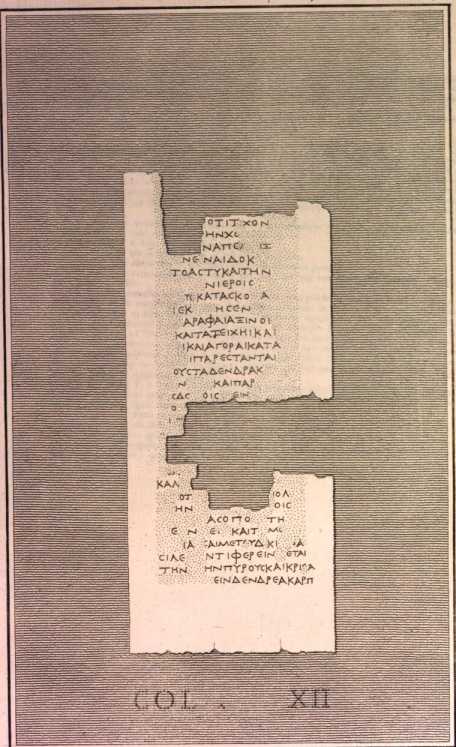 ΟΤΙΤ ΧΟΝ
ΗΝΧ
ΝΑΠΕ
ΝΕ ΝΑΙΔΟΚ
ΤΟΑΣΤΥΚΑΙΤΗΝ
ΝΙΕΡΟΙΣ
ΚΑΤΑΣΚΟ Α
ΙΕΚ ΗΣΕΝ
ΑΡΑΦΑΙΑΞΙΝΟΙ
ΚΑΙΤΑΤΕΙΧΗΙΚΑΙ
ΙΚΑΙΑΓΟΡΑΙΚΑΤΑ
ΙΠΑΡΕΣΤΑΝΤΑΙ
ΟΥΣΤΑΔΕΝΔΡΑΚ
Ν ΚΑΙΠΑΡ
ΟΙΣ ΕΙΝ
Ο
ΚΑΛ
ΟΤ ΙΟΛ
ΗΝ ΟΙΣ
ΑΣΟΠΟ ΤΗ
Ε Ν Ε ΚΑΙΤ
ΙΑ ΑΙΜΕΤ
ΣΙΛΕ ΝΤΙΦΕΡΕΙΝ ΕΤΑΙ
ΤΗΝ ΗΝΠΥΡΟΥΣΚΑΙΚΡΙ
ΕΙΝΔΕΝΔΡΕΑΚΑΡΠ
COL XII